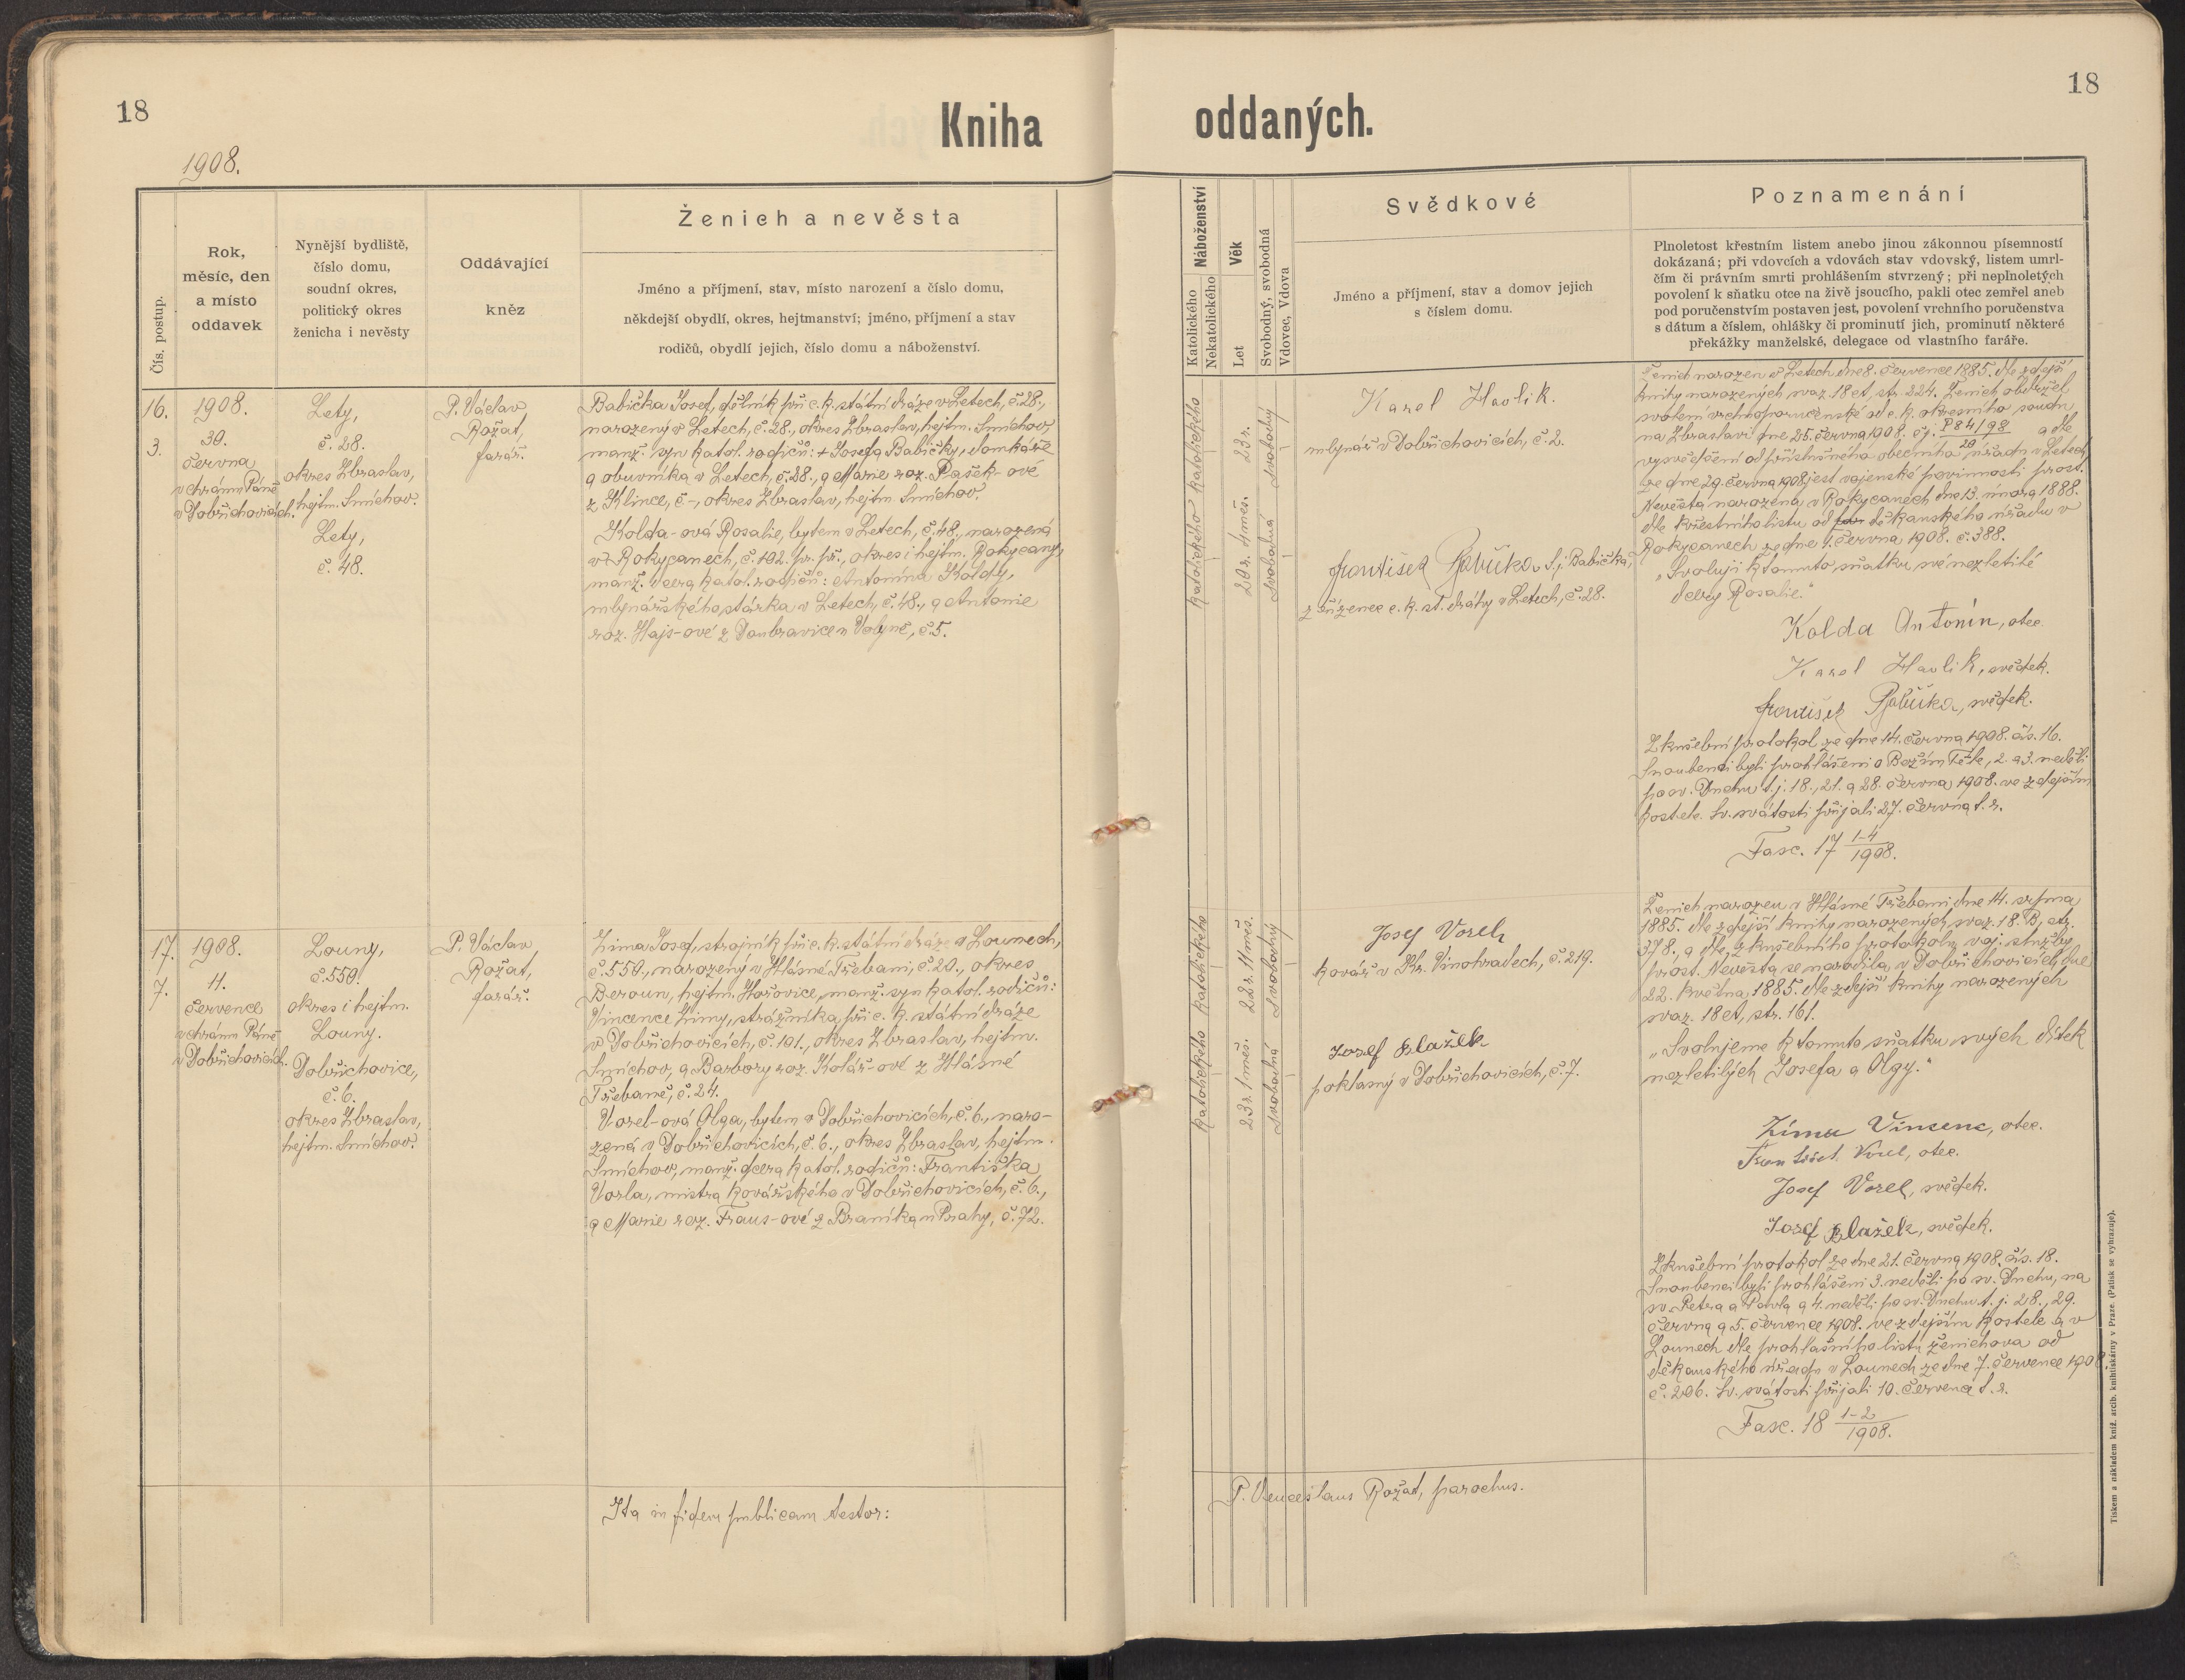 18
Kniha
1908.
Čís. postup.
Rok,
měsíc, den
a místo
oddavek
Nynější bydliště,
číslo domu,
soudní okres,
politický okres
ženicha i nevěsty
Oddávající
kněz
Ženich a nevěsta
Jméno a příjmení, stav, místo narození a číslo domu,
někdejší obydlí, okres, hejtmanství; jméno, příjmení a stav
rodičů, obydlí jejich, číslo domu a náboženství.
16.
3.
1908.
30.
června
v chrámu Páně
v Dobřichovicích.
Lety,
č. 28.
okres Zbraslav,
hejtm. Smíchov.
Lety,
č. 48.
P. Václav
Rožat,
farář.
Babička Josef, dělník při c. k. státní dráze v Letech, č. 28.,
narozený v Letech, č. 28., okres Zbraslav, hejtm. Smíchov,
manž. syn katol. rodičů: + Josefa Babičky, domkáře
a obuvníka v Letech, č. 28., a Marie roz. Pašek-ové
z Klince, č -, okres Zbraslav, hejtm. Smíchov.
Kolda-ová Rosalie, bytem v Letech, č. 48., narozená
v Rokycanech, č. 102. pr. př., okres i hejtm. Rokycany,
manž. dcera katol. rodičů: Antonína Koldy,
mlynářského stárka v Letech, č. 48., a Antonie
roz. Hajs-ové z Doubravice u Volyně, č. 5.
17.
7.
1908.
11.
července
v chrámu Páně
v Dobřichovicích.
Louny,
č. 559.
okres i hejtm.
Louny.
Dobřichovice,
č. 6.
okres Zbraslav,
hejtm. Smíchov.
P. Václav
Rožat,
farář.
Zima Josef, strojník při c. k. státní dráze v Lounech,
č. 559., narozený v Hlásné Třebani, č. 20., okres
Beroun, hejtm. Hořovice, manž. syn katol. rodičů:
Vincence Zimy, strážníka při c. k. státní dráze
v Dobřichovicích, č. 101., okres Zbraslav, hejtm.
Smíchov, a Barbory roz. Kolář-ové z Hlásné
Třebaně, č. 24.
Vorel-ová Olga, bytem v Dobřichovicích, č. 6., naro-
zená v Dobřichovicích, č. 6., okres Zbraslav, hejtm.
Smíchov, manž. dcera katol. rodičů: Františka
Vorla, mistra kovářského v Dobřichovicích, č. 6.,
a Marie roz. Fraus-ové z Braníka u Prahy, č. 72.
Ita in fidem publicam testor:
18
oddaných.
Náboženství
Katolického
Nekatolického
Věk
Let
Svobodný, svobodná
Vdovec, Vdova
Svědkové
Jméno a příjmení, stav a domov jejich
s číslem domu.
Poznamenání
Plnoletost křestním listem anebo jinou zákonnou písemností
dokázaná; při vdovcích a vdovách stav vdovský, listem umrl-
čím či právním smrti prohlášením stvrzený; při neplnoletých
povolení k sňatku otce na živě jsoucího, pakli otec zemřel aneb
pod poručenstvím postaven jest, povolení vrchního poručenstva
s dátum a číslem, ohlášky či prominutí jich, prominutí některé
překážky manželské, delegace od vlastního faráře.
Katolického
23 r.
Svobodný
Katolického
20 r. 4 měs.
Svobodná
Karel Havlik.
mlynář v Dobřichovicích, č. 2.
František Babička t. j. Babička,
zřízenec c. k. st. dráhy v Letech, č. 28.
Ženich narozen v Letech dne 8. července 1885. dle zdejší
knihy narozených svaz. 18 et, str. 224. Ženich obdržel
svolení vrchnoporučenské od c. k. okresního soudu
na Zbraslavi dne 25. června 1908. čj. P 84/98 a dle
20
vysvědčení od příslušného obecního úřadu v Letech
ze dne 29. června 1908 jest vojenské povinnosti prost.
Nevěsta narozena v Rokycanech dne 13. února 1888.
dle křestního listu od děkanského úřadu v
Rokycanech ze dne 1. června 1908. č. 388.
„Svoluji k tomuto sňatku své nezletilé
dcery Rosalie."
Kolda Antonín, otec.
Karel Havlik, svědek.
František Babička, svědek.
Zkušební protokol ze dne 14. června 1908. čís. 16.
Snoubenci byli prohlášeni o Božím Těle, 2. a 3. neděli
po sv. Duchu t. j. 18., 21. a 28. června 1908. ve zdejším
kostele. Sv. svátosti přijali 27. června t. r.
Fasc. 17 1-4
1908.
Katolického
22 r. 11 měs.
Svobodný
Katolického
23 r. 1 měs.
Svobodná
Josef Vorel
kovář v Kr. Vinohradech, č. 219.
Josef Blažek
poklasný v Dobřichovicích, č. 7.
Ženich narozen v Hlásné Třebani dne 14. srpna
1885. dle zdejší knihy narozených, svaz. 18. B, str.
378. a dle zkušebního protokolu voj. služby
prost. Nevěsta se narodila v Dobřichovicích dne
22. května 1885. dle zdejší knihy narozených
svaz. 18 et, str. 161.
„Svolujeme k tomuto sňatku svých dítek
nezletilých Josefa a Olgy."
Zima Vincenc, otec.
František Vorel, otec.
Josef Vorel, svědek.
Josef Blažek, svědek.
Zkušební protokol ze dne 21. června 1908. čís. 18.
Snoubenci byli prohlášeni 3. neděli po sv. Duchu, na
sv. Petra a Pavla a 4. neděli po sv. Duchu t. j. 28., 29.
června a 5. července 1908. ve zdejším kostele a v
Lounech dle prohlašního listu ženichova od
děkanského úřadu v Lounech ze dne 7. července 1908
č. 206. Sv. svátosti přijali 10. července t. r.
Fasc. 18 1-2
1908.
P. Venceslaus Rožat, parochus.
Tiskem a nákladem kníž. arcib. knihtiskárny v Praze. (Patisk se vyhrazuje).